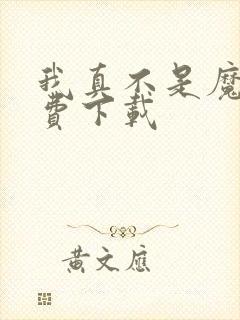 我真不是魔
費下載
黃文應